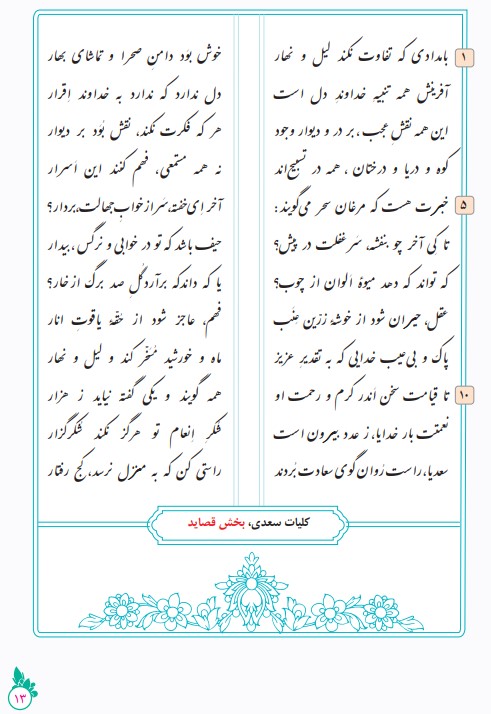 ۱
بامدادی که تفاوت نکند لیل و نهار خوش بود دامن صحرا و تماشای بهار
آفرینش همه تنبیه خداوندِ دل است دل ندارد که ندارد به خداوند اِقرار
این همه نقشِ عجب، بر در و دیوار وجود هر که فکرت نکند، نقش بُوَد بر دیوار
کوه و دریا و درختان، همه در تسبیح‌اند نه همه مستمعی، فهم کنند این اَسرار
۵
خبرت هست که مرغان سحر می‌گویند: آخر ای خفته، سر از خوابِ جهالت، بردار؟
تا کی آخر چو بنفشه، سَرِ غفلت در پیش؟ حیف باشد که تو در خوابی و نرگس، بیدار
که تواند که دهد میوهٔ اَلوان از چوب؟ یا که داند که برآرد گلِ صد برگ از خار؟
عقل، حیران شود از خوشهٔ زرّین عِنَب فهم، عاجز شود از حُقّهٔ یاقوتِ انار
پاک و بی‌عیب خدایی که به تقدیر عزیز ماه و خورشید مُسَخّر کند و لیل و نهار
۱۰
تا قیامت سخن اَندر کرم و رحمت او همه گویند و یکی گفته نیاید ز هزار
نعمتت بار خدایا، ز عدد بیرون است شکرِ اِنعام تو هرگز نکند شکرگزار
سعدیا، راست رَوان گوی سعادت بُردند راستی کن که به منزل نرسد، کج رفتار
کلیات سعدی، بخش قصاید
۱۳